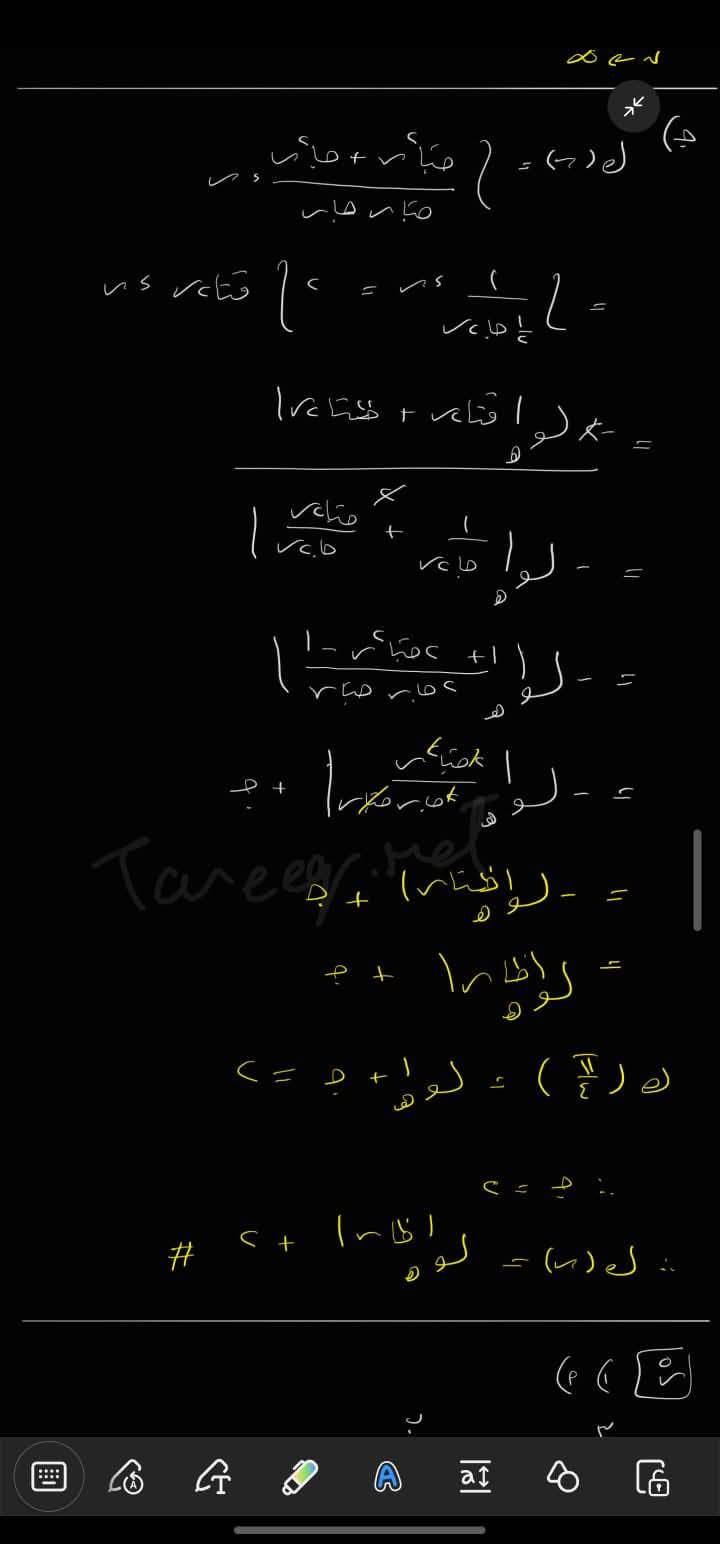 س ← ∞
جـ) ق(س) = ∫ (جتا²س + جا²س)/(جتاس جاس) ءس
= ∫ ١/(½ جا٢س) ءس = ٢ ∫ قتا٢س ءس
= -٢ × ١/٢ لو_هـ |قتا٢س + ظتا٢س|
= - لو_هـ |١/جا٢س + جتا٢س/جا٢س|
= - لو_هـ |(١ + ٢جتا²س - ١)/(٢جاس جتاس)|
= - لو_هـ |٢جتا²س/(٢جاس جتاس)| + جـ
Tareeq.net
= - لو_هـ |ظتاس| + جـ
= لو_هـ |ظاس| + جـ
ق(π/٤) = لو_هـ ١ + جـ = ٢
∴ جـ = ٢
∴ ق(س) = لو_هـ |ظاس| + ٢ #
س٥ ١) ٢)